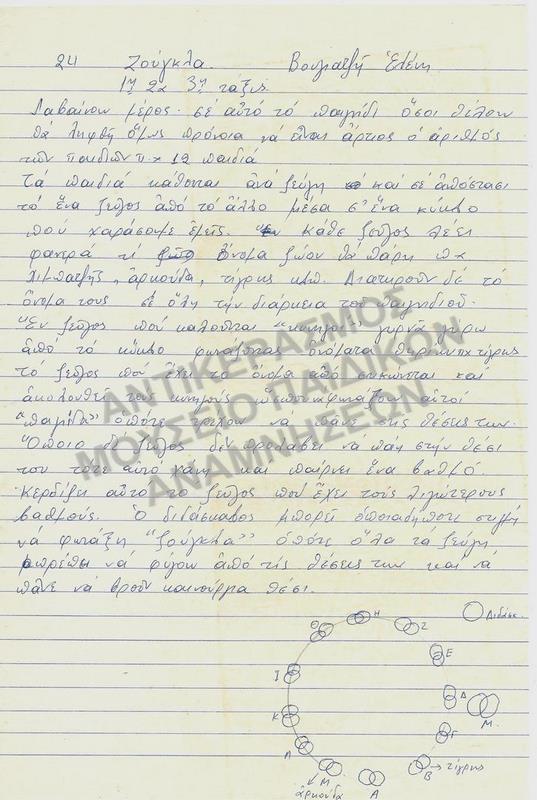 24 Ζούγκλα. Βουγιατζή Ἑλένη
1η, 2α 3η τάξις.
Λαβαίνουν μέρος σέ αὐτό τό παιγνίδι ὅσοι θέλουν
θά ληφθῆ ὅμως πρόνοια νά εἶναι ἄρτιος ὁ ἀριθμός
τῶν παιδιῶν π.χ 12 παιδιά
Τά παιδιά κάθονται ἀνά ζεύγη καί σέ ἀπόστασι
τό ἕνα ζεῦγος ἀπό τό ἄλλο μέσα σ' ἕνα κύκλο
πού χαράσσομε ἐμεῖς. Κάθε ζεῦγος λέει
φανερά τί ὄνομα ζώου θά πάρη πχ
λιμπατζής, ἀρκούδα, τίγρης κλπ. Διατηροῦν δέ τό
ὄνομα τους σέ ὅλη τήν διάρκεια τοῦ παιγνιδιοῦ.
Ἕν ζεῦγος πού καλοῦνται "κυνηγοί" γυρνᾶ γύρω
ἀπό τό κύκλο φωνάζοντας ὀνόματα θηρίων πχ τίγρης
τό ζεῦγος πού ἔχει τό ὄνομα αὐτό σηκώνεται καί
ἀκολουθεῖ τούς κυνηγούς ὥσπου νά φωνάξουν αὐτοί
"παγίδα" ὁπότε τρέχουν νά πᾶνε στίς θέσεις των.
Ὅποιο δέ ζεῦγος δέν προλάβει νά πάη στήν θέσι
του τότε αὐτό χάνη καί παίρνει ἕνα βαθμό
Κερδίζει αὐτό τό ζεῦγος πού ἔχει τούς λιγώτερους
βαθμούς. Ὁ διδάσκαλος μπορεῖ ὁποιαδήποτε στιγμή
νά φωνάξη "ζούγκλα" ὁπότε ὅλα τά ζεύγη
πρέπει νά φύγουν ἀπό τίς θέσεις των καί νά
πᾶνε νά βροῦν καινούργια θέσι.
Διδάσκ.
Θ Η Ζ
Ε
Ι
Δ
Μ.
Κ
Γ
Λ
Β → τίγρης
Μ
ἀρκούδα Α
ΑΝΤΙΚΕΡΑΣΜΟΣ
ΜΟΥΣΕΙΟ ΠΑΙΔΙΚΩΝ
ΑΝΑΜΝΗΣΕΩΝ